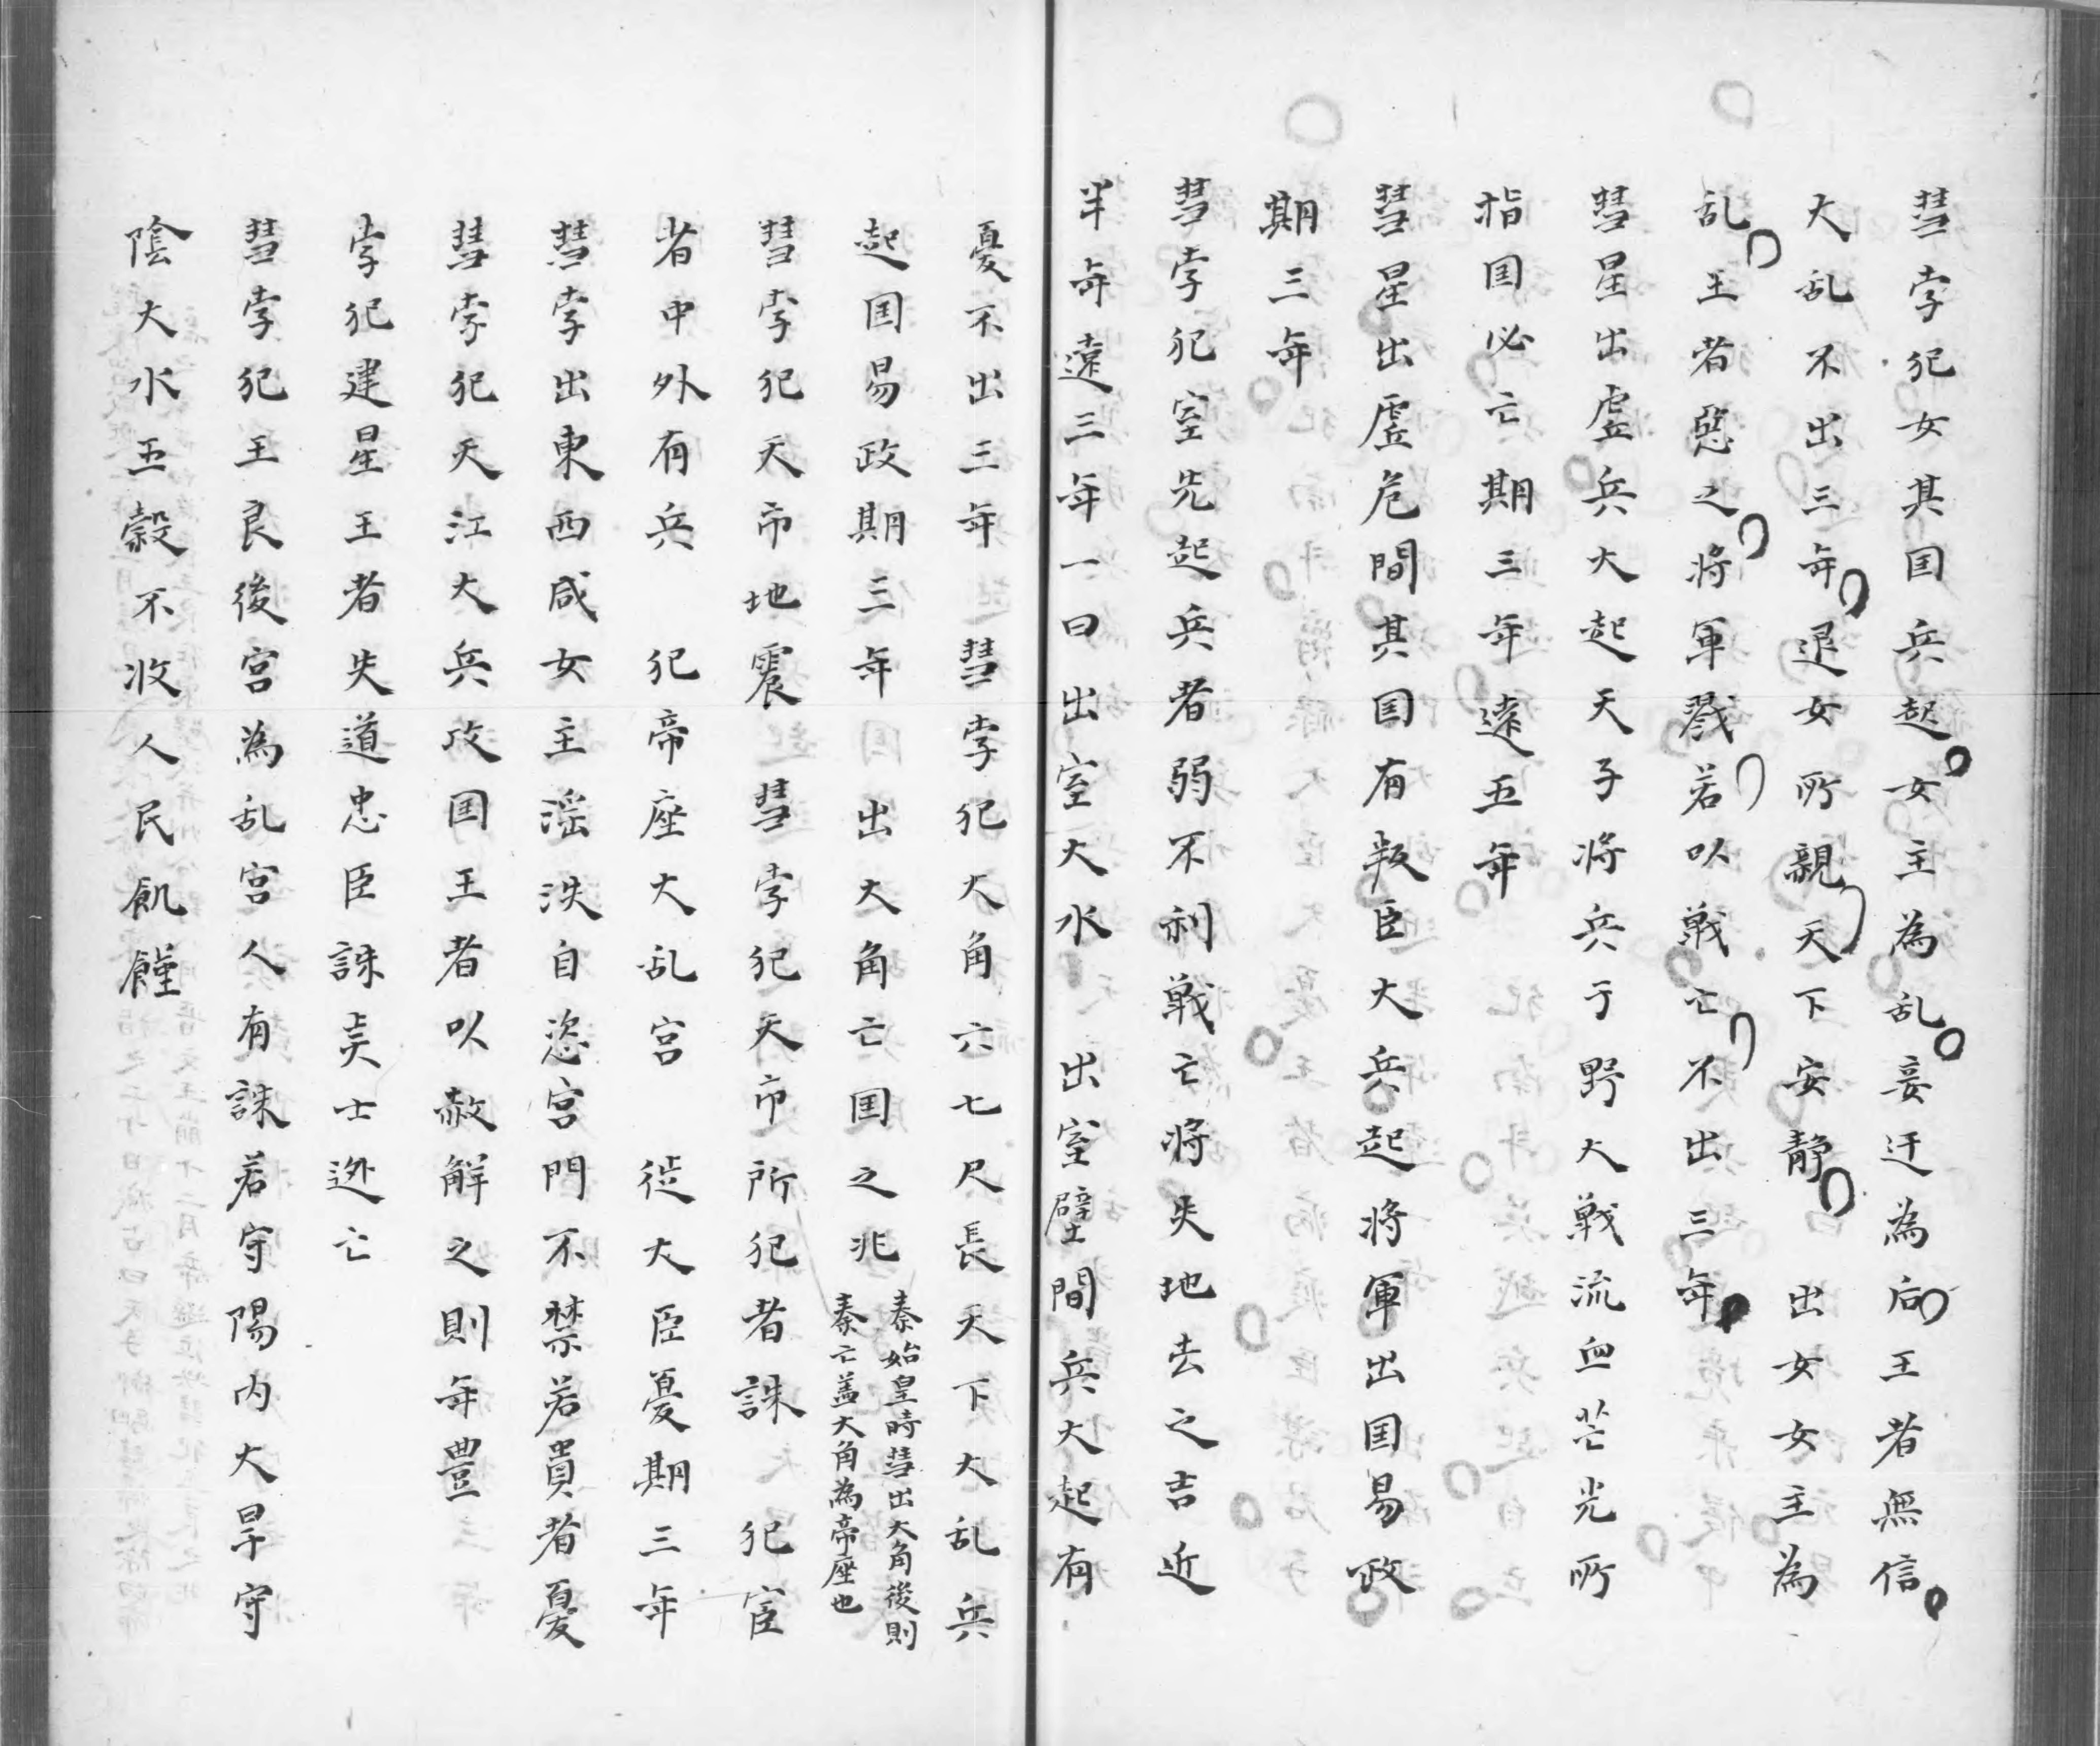 彗孛犯女其囯兵起女主為乱妾迁為后王者無信
大乱不出三年退女所親天下安静　出女女主為
乱王者惡之将軍戮若以戦亡不出三年
彗星出虚兵大起天子将兵于野大戦流血芒光所
指囯必亡期三年遠五年
彗星出虚危間其囯有叛臣大兵起将軍出囯易政
期三年
彗孛犯室先起兵者弱不利戦亡将失地去之吉近
半年遠三年一曰出室大水　出室壁間兵大起有
憂不出三年　彗孛犯大角六七尺長天下大乱兵
起囯易政期三年　出大角亡囯之兆秦始皇時彗出大角後則秦亡盖大角為帝座也
彗孛犯天市地震　彗孛犯天市所犯者誅　犯宦
者中外有兵　犯帝座大乱宮　徙大臣憂期三年
彗孛出東西咸女主滛泆自恣宮門不禁若貴者憂
彗孛犯天江大兵攻囯王者以赦解之則年豊
孛犯建星王者失道忠臣誅吉士迯亡
彗孛犯王良後宮為乱宮人有誅若守陽内大旱守
陰大水五穀不收人民飢饉